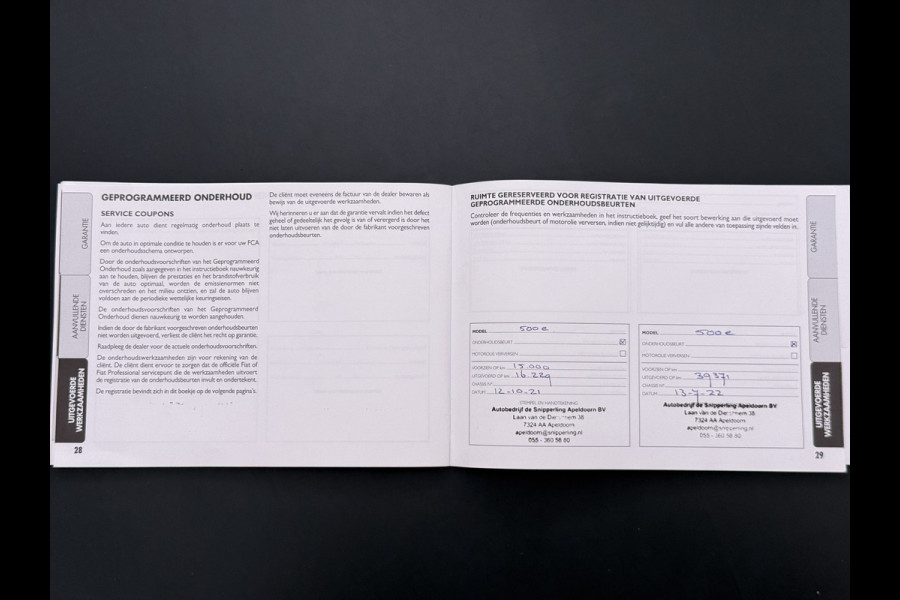 GARANTIE
AANVULLENDE
DIENSTEN
UITGEVOERDE
WERKZAAMHEDEN
GEPROGRAMMEERD ONDERHOUD
SERVICE COUPONS
Aan iedere auto dient regelmatig onderhoud plaats te
vinden.
Om de auto in optimale conditie te houden is er voor uw FCA
een onderhoudsschema ontworpen.
Door de onderhoudsvoorschriften van het Geprogrammeerd
Onderhoud zoals aangegeven in het instructieboek nauwkeurig
aan te houden, blijven de prestaties en het brandstofverbruik
van de auto optimaal, worden de emissienormen niet
overschreden en het milieu ontzien, en zal de auto blijven
voldoen aan de periodieke wettelijke keuringseisen.
De onderhoudsvoorschriften van het Geprogrammeerd
Onderhoud dienen nauwkeurig te worden aangehouden.
Indien de door de fabrikant voorgeschreven onderhoudsbeurten
niet worden uitgevoerd, verliest de cliënt het recht op garantie.
Raadpleeg de dealer voor de actuele onderhoudsvoorschriften.
De onderhoudswerkzaamheden zijn voor rekening van de
cliënt. De cliënt dient ervoor te zorgen dat de officiële Fiat of
Fiat Professional servicepunt die de werkzaamheden uitvoert
de registratie van de onderhoudsbeurten invult en ondertekent.
De registratie bevindt zich in dit boekje op de volgende pagina's.
28
De cliënt moet eveneens de factuur van de dealer bewaren als
bewijs van de uitgevoerde werkzaamheden.
Wij herinneren u er aan dat de garantie vervalt indien het defect
geheel of gedeeltelijk het gevolg is van of verergerd is door het
niet laten uitvoeren van de door de fabrikant voorgeschreven
onderhoudsbeurten.
RUIMTE GERESERVEERD VOOR REGISTRATIE VAN UITGEVOERDE
GEPROGRAMMEERDE ONDERHOUDSBEURTEN
Controleer de frequenties en werkzaamheden in het instructieboek, geef het soort bewerking aan die uitgevoerd moet
worden (onderhoudsbeurt of motorolie verversen, indien niet gelijktijdig) en vul alle andere van toepassing zijnde velden in.
MODEL 500e
ONDERHOUDSBEURT
MOTOROLIE VERVERSEN
VOORZIEN OP km 15.000
UITGEVOERD OP km 16.229
CHASSIS N°
DATUM 12-10-21
STEMPEL EN HANDTEKENING
Autobedrijf de Snipperling Apeldoorn BV
Laan van de Dierenriem 38
7324 AA Apeldoorn
apeldoorn@snipperling.nl
055 - 360 58 60
MODEL 500e
ONDERHOUDSBEURT
MOTOROLIE VERVERSEN
VOORZIEN OP km
UITGEVOERD OP km 39371
CHASSIS N°
DATUM 13-7-22
Autobedrijf de Snipperling Apeldoorn BV
Laan van de Dierenriem 38
7324 AA Apeldoorn
apeldoorn@snipperling.nl
055 - 360 58 60
GARANTIE
AANVULLENDE
DIENSTEN
UITGEVOERDE
WERKZAAMHEDEN
29